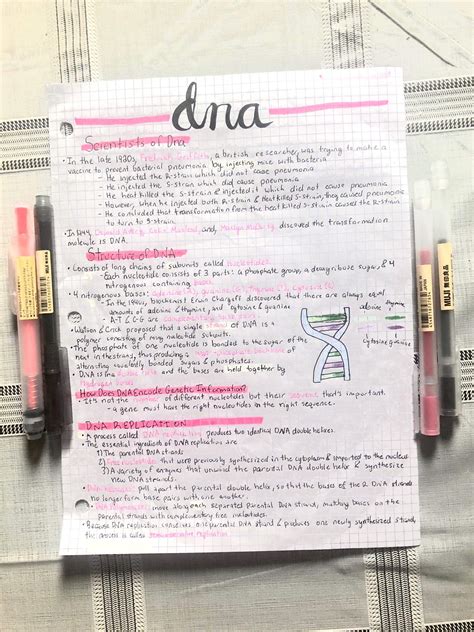 dna
Scientists of Dna
• In the late 1920s, Frederick Griffith, a british researcher, was trying to make a
vaccine to prevent bacterial pneumonia by injecting mice with bacteria
- He injected the R-strain which did not cause pneumonia
- He injected the S-strain which did cause pneumonia
- He heat killed the S-strain & injected it which did not cause pneumonia
- However, when he injected both R-strain & Heat killed S-strain, they caused pneumonia
- He concluded that transformation from the heat killed S-strain caused the R-strain
to turn to S-strain.
• In 1944, Oswald Avery, Colin Macleod, and Maclyn McCarty discovered the transformation
molecule is DNA.
Structure of DNA
• Consists of long chains of subunits called nucleotides
- Each nucleotide consists of 3 parts: a phosphate group, a deoxyribose sugar, & 4
nitrogenous containing bases
• 4 nitrogenous bases:
- In the 1940s, biochemist Erwin Chargaff discovered that there are always equal
amounts of adenine & thymine, and cytosine & guanine
- A-T & C-G are complementary base pairs
• Watson & Crick proposed that a single strand of DNA is a
polymer consisting of many nucleotide subunits.
• The phosphate of one nucleotide is bonded to the sugar of the
next in the strand, thus producing a sugar-phosphate backbone of
alternating covalently bonded sugars & phosphates.
• DNA is a double helix and the bases are held together by
hydrogen bonds
adenine thymine
cytosine guanine
How Does DNA Encode Genetic Information?
• It's not the number of different nucleotides but their sequence that's important.
- a gene must have the right nucleotides in the right sequence.
DNA REPLICATION
• A process called DNA replication produces two identical DNA double helixes.
• The essential ingredients of DNA replication are
1) The parental DNA strands
2) Free nucleotides that were previously synthesized in the cytoplasm & imported to the nucleus
3) A variety of enzymes that unwind the parental DNA double helix & synthesize
new DNA strands.
• DNA helicases: pull apart the parental double helix, so that the bases of the 2 DNA strands
no longer form base pairs with one another.
• DNA polymerases: move along each separated Parental DNA strand, matching bases on the
Parental strands with complementary free nucleotides.
• Because DNA replication conserves one parental DNA strand & produces one newly synthesized strand,
the process is called semiconservative replication
MUJI